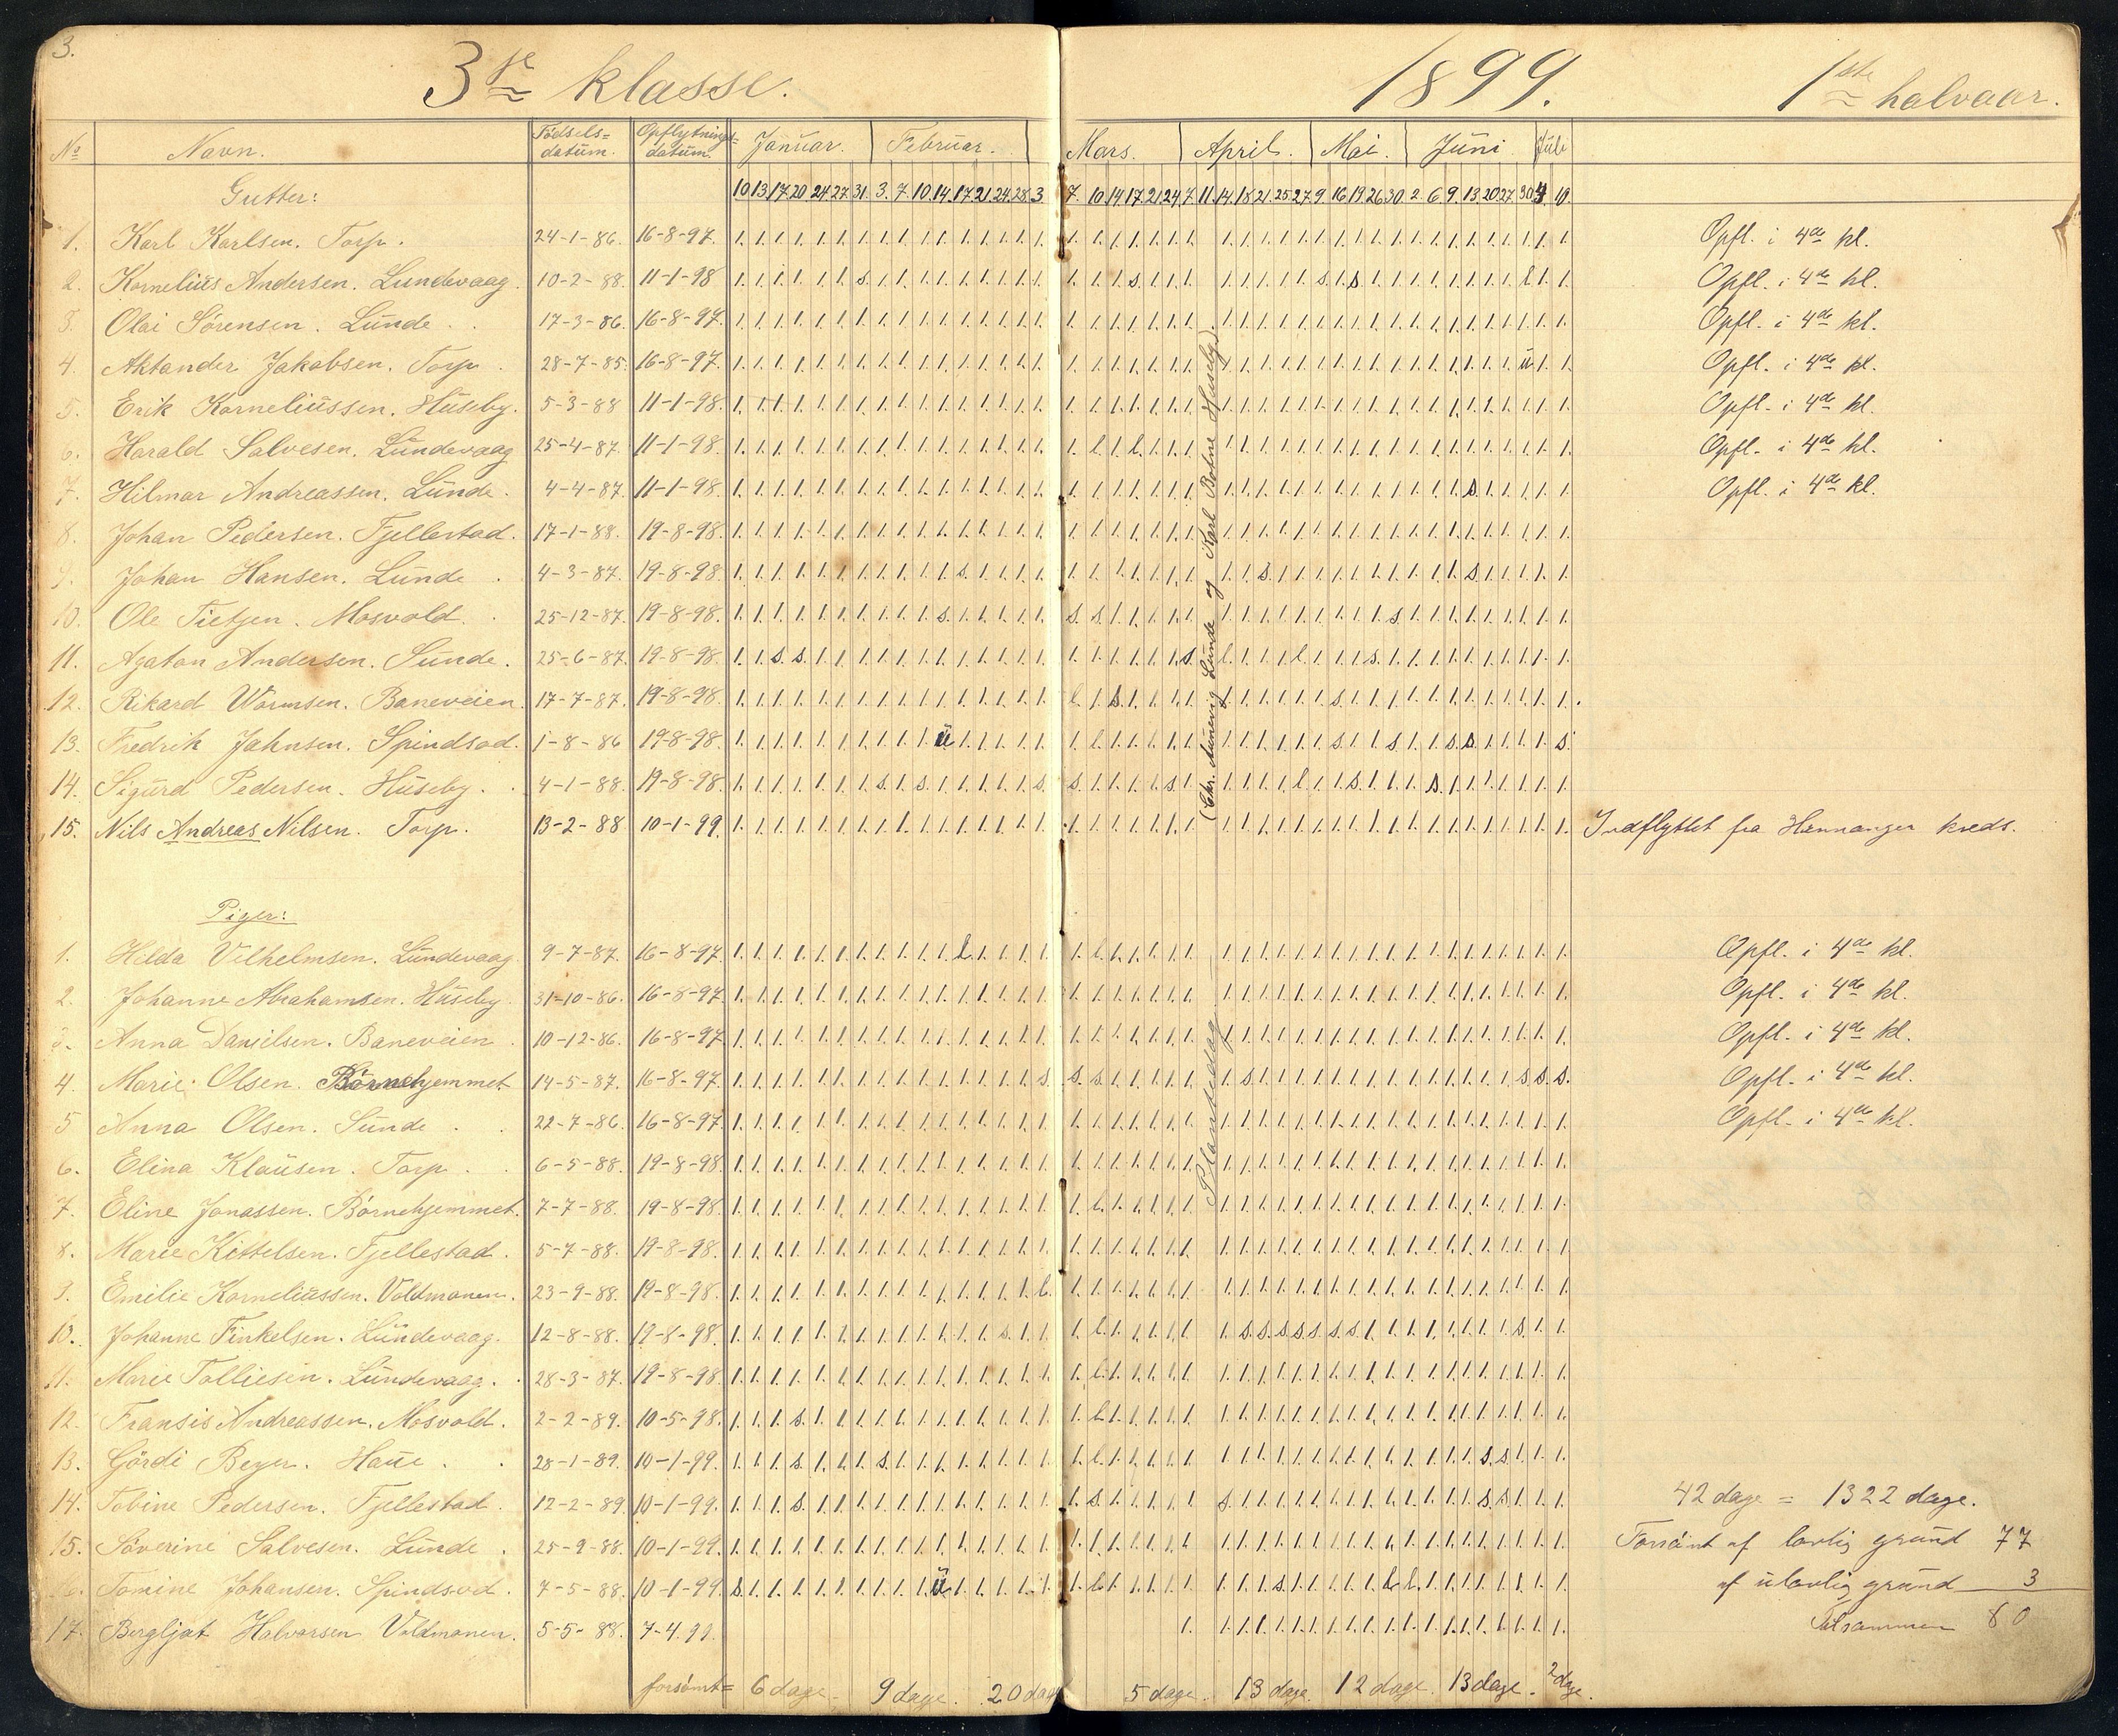 3.
3die klasse.
1899.
1ste halvaar.
No Navn. Fødsels= datum. Opflytnings= datum. Januar. Februar. Mars. April. Mai. Juni Juli
Gutter: 10 13 17 20 24 27 31 3. 7. 10. 14. 17 21 24. 28 3 7. 10. 14. 17. 21 24 7. 11. 14. 18. 21. 25. 27 9 16 19. 26 30 2. 6 9. 13 20 27 30 4 10.
1. Karl Karlsen. Torp. 24-1-86. 16-8-97. Opfl. i 4de kl.
2. Kornelius Andersen. Lundevaag. 10-2-88. 11-1-98 Opfl. i 4de kl.
3. Olai Sørensen. Lunde. 17-3-86. 16-8-97. Opfl. i 4de kl.
4. Aktander Jakobsen. Torp. 28-7-85. 16-8-97. Opfl. i 4de kl.
5. Erik Korneliussen. Huseby. 5-3-88 11-1-98. Opfl. i 4de kl.
6. Harald Salvesen. Lundevaag 25-4-87. 11-1-98. Opfl. i 4de kl.
7. Hilmar Andreassen. Lunde. 4-4-87. 11-1-98. Opfl. i 4de kl.
8. Johan Pedersen. Fjellestad. 17-1-88. 19-8-98.
9. Johan Hansen. Lunde. 4-3-87. 19-8-98.
10. Ole Tietjen. Mosvold. 25-12-87. 19-8-98.
11. Agaton Andersen. Sunde. 25-6-87. 19-8-98.
12. Rikard Wormsen. Baneveien. 17-7-87. 19-8-98.
13. Fredrik Jahnsen. Spindsod. 1-8-86 19-8-98.
14. Sigurd Pedersen. Huseby. 4-1-88. 19-8-98.
15. Nils Andreas Nilsen. Torp. 13-2-88 10-1-99. Indflyttet fra Hennanger kreds.
(Chr. Aunevig Lunde og Karl Botne Huseby).
Piger:
1. Hilda Vilhelmsen. Lundevaag 9-7-87. 16-8-97. Opfl. i 4de kl.
2. Johanne Abrahamsen. Huseby. 31-10-86. 16-8-97. Opfl. i 4de kl.
3. Anna Danielsen. Baneveien 10-12-86. 16-8-97. Opfl. i 4de kl.
4. Marie Olsen. Børnehjemmet 14-5-87. 16-8-97. Opfl. i 4de kl.
5 Anna Olsen. Sunde. 22-7-86. 16-8-97. Opfl. i 4de kl.
6. Elina Klausen. Torp. 6-5-88. 19-8-98.
7. Eline Jonassen. Børnehjemmet. 7-7-88. 19-8-98.
8. Marie Kittelsen. Fjellestad. 5-7-88. 19-8-98.
9. Emilie Korneliussen. Voldmonen. 23-9-88. 19-8-98.
10. Johanne Finkelsen. Lundevaag. 12-8-88. 19-8-98.
11. Marie Tolliesen. Lundevaag. 28-3-87. 19-8-98.
12. Fransis Andreassen. Mosvold. 2-2-89. 10-5-98.
13. Gördi Beyer. Haue. 28-1-89. 10-1-99.
14. Tobine Pedersen. Fjellestad. 12-2-89 10-1-99. 42 dage = 1322 dage.
15. Søverine Salvesen. Lunde. 25-9-88. 10-1-99. Forsømt af lovlig grund 77
16. Tomine Johansen. Spindsod. 7-5-88. 10-1-99 af ulovlig grund 3
17. Bergljot Halvorsen Voldmonen. 5-5-88. 7-4.99. Tilsammen 80
Plantedag.
forsømt= 6 dage. 9 dage. 20 dage 5 dage. 13 dage. 12 dage. 13 dage. 2 dage.